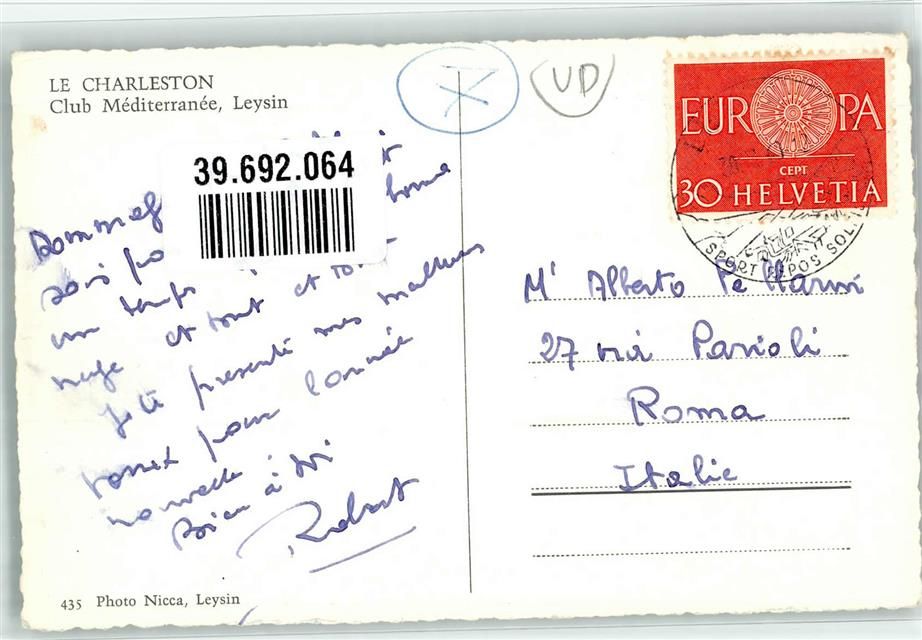 LE CHARLESTON
Club Méditerranée, Leysin
X
UD
39.692.064
EUROPA
CEPT
30 HELVETIA
SPORT REPOS SOL
Dommage
un temps
et tout et tout
je te présente mes meilleurs
pour l'année
nouvelle
Bien à toi
Robert
Mr Alberto
27 via Parioli
Roma
Italie
435 Photo Nicca, Leysin